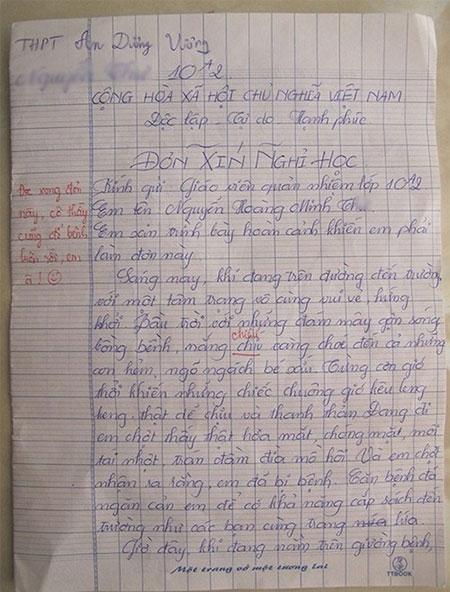 THPT An Dương Vương
10A2
CỘNG HÒA XÃ HỘI CHỦ NGHĨA VIỆT NAM
Độc lập - Tự do - Hạnh phúc
ĐƠN XIN NGHỈ HỌC
Kính gửi Giáo viên quản nhiệm lớp 10A2
Em tên Nguyễn Hoàng Minh
Em xin trình bày hoàn cảnh khiến em phải
làm đơn này.
Đọc xong đơn
này, cô thấy
cũng đổ bệnh
luôn rồi, em
ạ!
Sáng nay, khi đang trên đường đến trường
với một tâm trạng vô cùng vui vẻ, hứng
khởi. Bầu trời với những đám mây gợn sóng
bồng bềnh, nắng chíu chiếu càng chói đến cả những
con hẻm, ngõ ngách bé xíu. Từng cơn gió
thổi khiến những chiếc chuông gió kêu leng
keng thật dễ chịu và thanh thản. Đang đi
em chợt thấy thật hoa mắt, chóng mặt, môi
tái nhợt, trán đầm đìa mồ hôi. Và em chợt
nhận ra rằng, em đã bị bệnh. Căn bệnh đã
ngăn cản em để có khả năng cắp sách đến
trường như các bạn cùng trang lứa.
Giờ đây, khi đang nằm trên giường bệnh,
Một trang vở một tương lai
TTBOOK